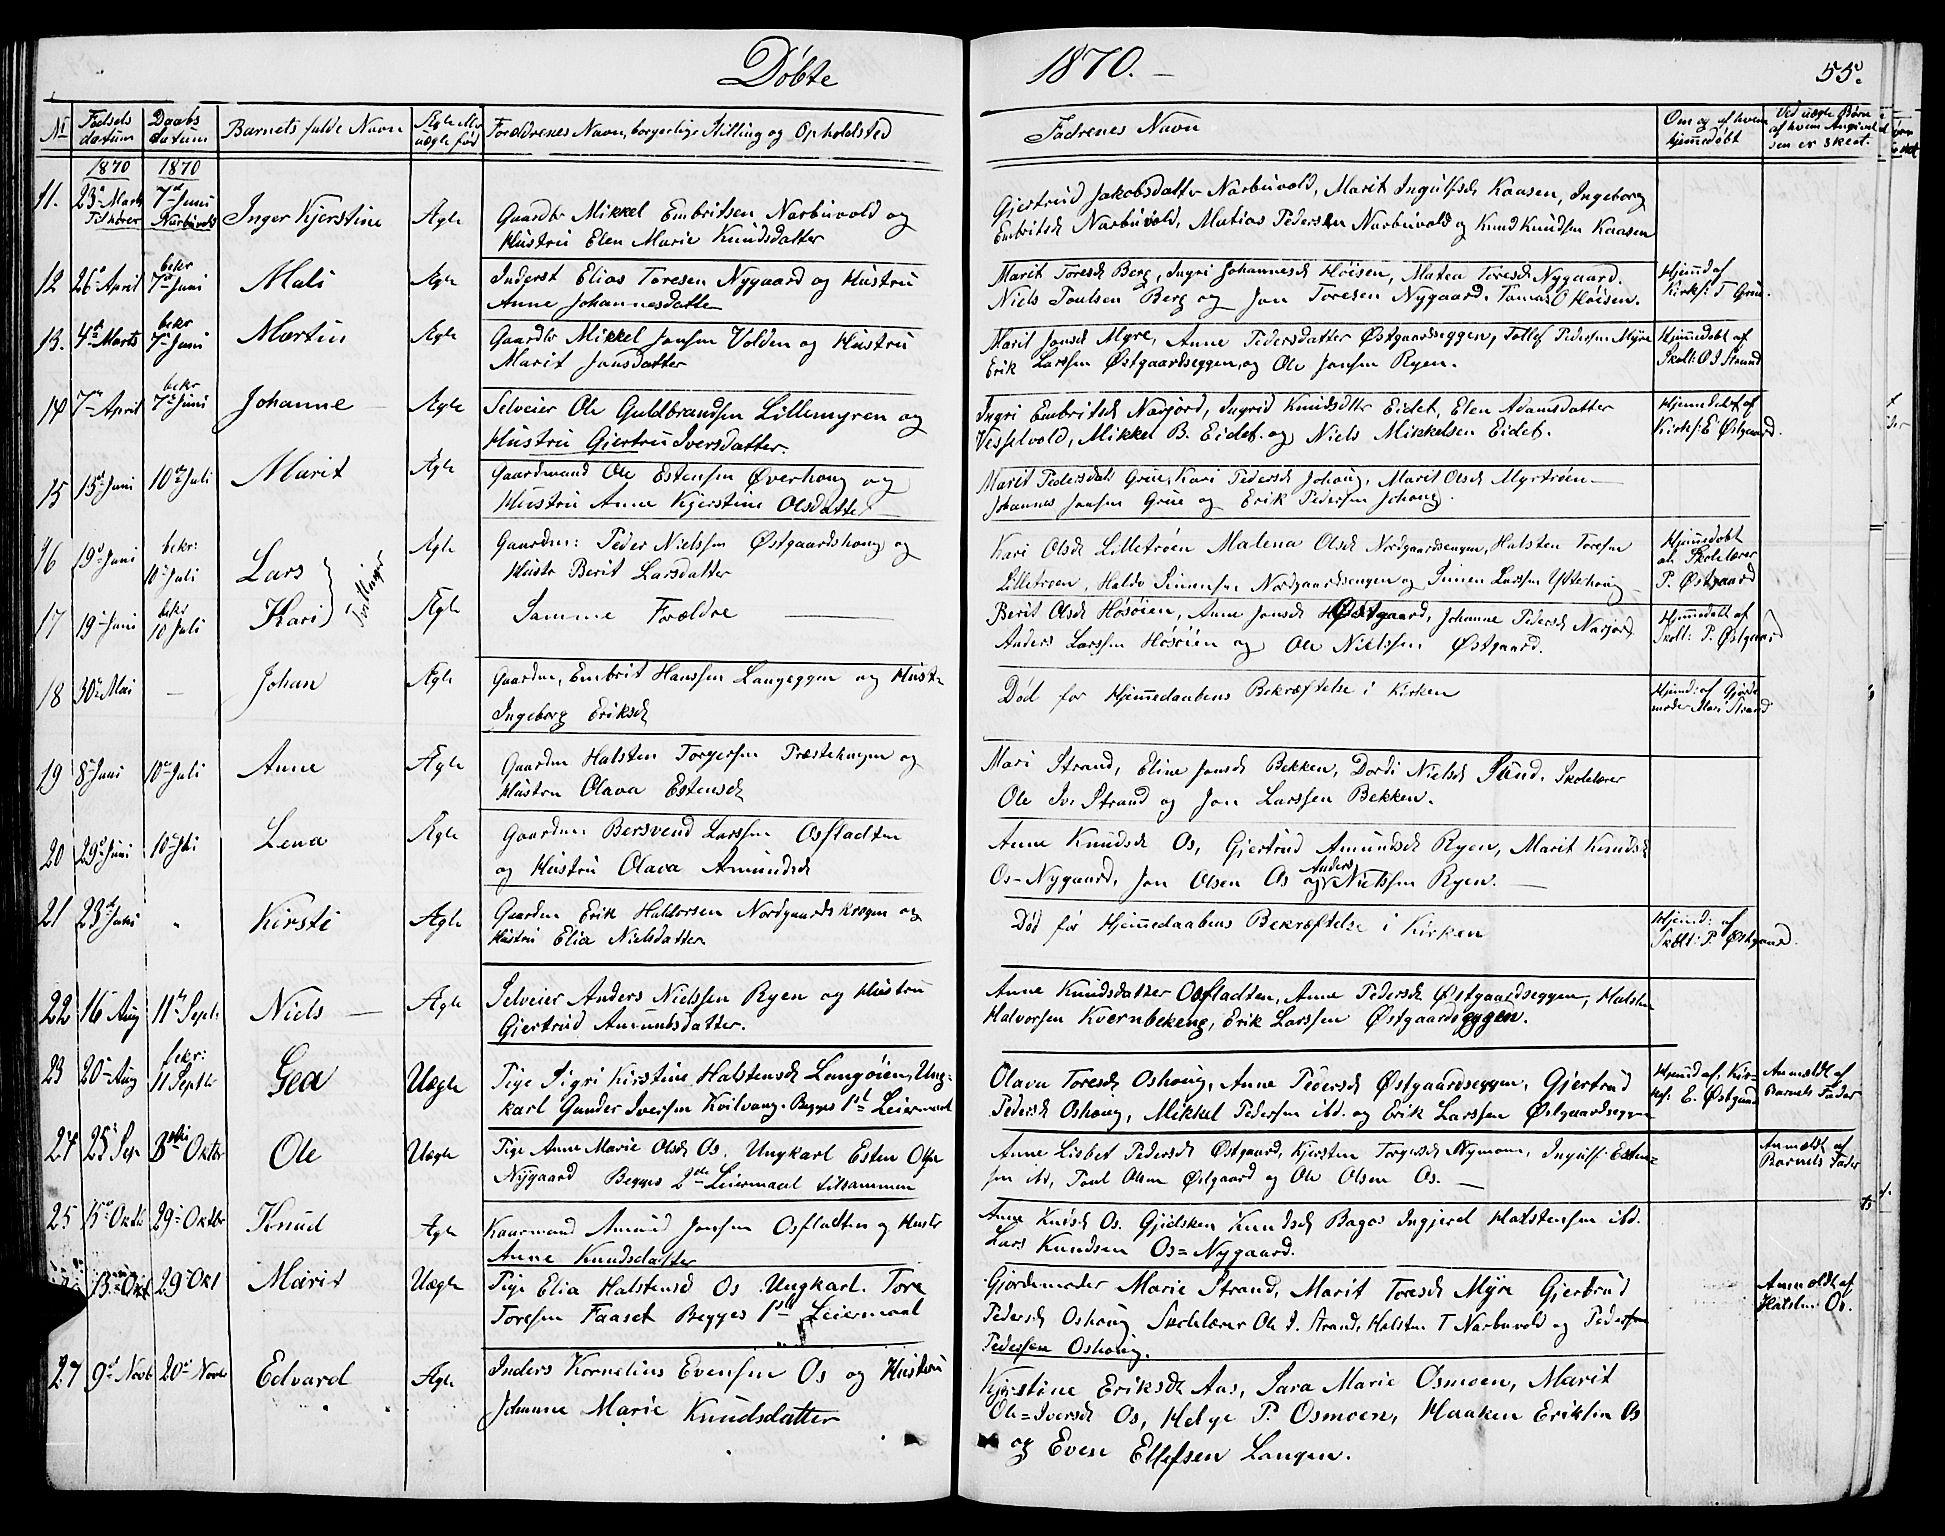 Döbte 1870. 55.
No Födsels datum Daabs datum Barnets fulde Navn Ægte eller uægte född Forældrenes Navn, borgerlige Stilling og Opholdsted Fadrenes Navn Om og af hvem hjem̄edöbt Ved uægte Börn af hvem Angivelsen er skeet.
1870 1870
11. 23de Marts 7de Juni Narbuvold Inger Kjerstine Ægte Gaardbr Mikkel Embritsen Narbuvold og
Hustru Elen Marie Knudsdatter
Gjertrud Jakobsdatter Narbuvold, Marit Ingulfsd Kaasen, Ingeborg
Embritsd Narbuvold, Matias Pedersen Narbuvold og Knud Knudsen Kaasen
12 26de April bekr 7de Juni Mali Ægte Inderst Elias Toresen Nygaard og Hustru
Anne Johannesdatter
Marit Toresd Berg, Ingri Johannesd Höisen, Matea Toresd Nygaard.
Niels Poulsen Berg og Jon Toresen Nygaard. Tomas O Höisen.
Hjemd af
Kirks: T Grue.
13. 4de Marts bekr 7de Juni Martin Ægte Gaardbr Mikkel Jonsen Volden og Hustru
Marit Jonsdatter
Marit Jonsd Myre, Anne Pedersdatter Østgaardseggen, Tollef Pedersen Myre
Erik Larssen Østgaardseggen, og Ole Jonsen Ryen.
Hjem̄edöbt af
Skoll: O I Strand
14 7de April bekr 7de Juni Johanne Ægte Selveier Ole Guldbrandsen Lillemyren og
Hustru Gjertru Iversdatter.
Ingri Embritsd Narjord, Ingrid Knudsdtter Eidet, Elen Adamsdatter
Vesselvold, Mikkel B. Eidet og Niels Mikkelsen Eidet.
Hjemedöbt af
Kirks: E Østgaard.
15 15de Juni 10de Juli Marit Ægte Gaardmand Ole Estensen Øverhoug og
Hustru Anne Kjerstine Olsdatter
Marit Pedersdatt Grue, Kari Pedersd Johoug, Marit Olsd Myrtröen
Johannes Jonsen Grue og Erik Pedersen Johoug.
16 19de Juni bekr: 10de Juli Lars Tvillinger Ægte Gaardm: Peder Nielssen Østgaardshoug og
Hustr Berit Larsdatter
Kari Olsd Lilletröen Malena Olsd Nordgaardsengen, Halsten Toresen
Lilletröen, Haldo Simensen Nordgaardsengen og Simen Larssen Ytterhoug
Hjem̄edöbt
af Skolelærer
P. Østgaard
17 19de Juni bekr 10 Juli Kari Ægte Samme Forældre
Berit Olsd Hösöien, Anne Jonsd Østgaard, Johanne Pedersd Narjord
Anders Larssen Hösöien og Ole Nielssen Østgaard.
Hjem̄edöbt af
Skoll: P. Østgaard
18 30de Mai Johan Ægte Gaardm, Embrit Hanssen Langeggen og Hustr
Ingeborg Eriksd
Död for Hjem̄edaabens Bekræftelse i Kirken
Hjemd: af Gjordemoder Mari Strand
19 8de Juni 10de Juli Anne Ægte Gaardm Halsten Torgersen Præstehugen og
Hustru Olava Estensd
Mari Strand, Eline Jonsd Bekken, Dordi Nielsd Sund. Skolelærer
Ole Iv. Strand og Jon Larssen Bekken.
20 29de Juni 10de Juli Lena Ægte Gaardm: Bersvend Larssen Osfladten
og Hustru Olava Amundsd
Anne Knudsd Os, Gjertrud Amundsd Ryen, Marit Knudsd
Os-Nygaard, Jon Olsen Os og Anders Nielssen Ryen.
21 23de Juni " Kirsti Ægte Gaardm Erik Haldorsen Nordgaards krogen og
Hustru Elia Nielsdatter
Död för Hjem̄edaabens Bekræftelse i Kirken
Hjemd: af
Skoll: P. Østgaard.
22 16 Aug 11te Septbr Niels Ægte Selveier Anders Nielssen Ryen og Hustru
Gjertrud Amundsdatter.
Anne Knudsdatter Osfladten, Anne Pedersd Østgaardseggen, Halsten
Halvorsen Kvernbekeng, Erik Larssen Østgaardseggen.
23 20de Aug bekr: 11 Septbr Gea Uægte Pige Sigri Kirstine Halstensd Langöien, Ung-
karl Gunder Iversen Kvilvang. Begges 1ste Leiermaal
Olava Toresd Oshoug, Anne Pedersd Østgaardseggen, Gjertrud
Pedersd Oshoug, Mikkel Pedersen ibd. og Erik Larssen Østgaardseggen
Hjemd af. Kir-
ks: E. Østgaard
Anmeldt af
Barnets Fader
24 25de Sep 3die Oktbr Ole Uægte Pige Anne Marie Olsd Os. Ungkarl Esten Olsen
Nygaard Begges 2det Leiermaal tilsammen
Anne Lisbet Pedersd Østgaard, Kjersten Torgersd Nymoen, Ingulf: Esten-
sen ibd, Poul Olsen Østgaard og Ole Olsen Os.
Anmeldt af
Barnets Fader
25 15de Oktbr 29de Oktbr Knud Ægte Kaarmand Amund Jonsen Osfladten og Hustr
Anne Knudsdatter
Anne Knudsd Os. Gjidsken Knudsd Bagos Ingjerd Halstensen ibd.
Lars Knudsen Os=Nygaard.
13de Okt 29 Okt Marit Uægte Pige Elia Halstensd Os. Ungkarl. Tore
Toresen Faaset Begges 1ste Leiermaal
Gjordemoder Marie Strand, Marit Toresd Myre Gjertrud
Pedersd Oshoug Skolelærer Ole I. Strand, Halsten T Narbuvold og Pedersen
Pedersen Oshoug.
Anmeldt af
Halsten Os.
27 9de Novb 20de Novbr Edvard Ægte Inders Kornelius Evensen Os og Hustru
Johanne Marie Knudsdatter
Kjerstine Eriksd Aas, Sara Marie Osmoen, Marit
Ole=Iversd Os, Helge P. Osmoen, Haaken Eriksen Os
og Even Ellefsen Langen.